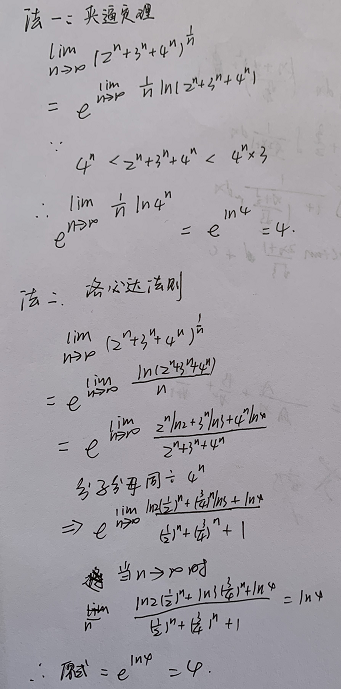 法一: 夹逼定理
lim n→∞ (2ⁿ+3ⁿ+4ⁿ)^(1/n)
= e^(lim n→∞ 1/n ln(2ⁿ+3ⁿ+4ⁿ))
∵
4ⁿ < 2ⁿ+3ⁿ+4ⁿ < 4ⁿ×3
∴ e^(lim n→∞ 1/n ln4ⁿ) = e^(ln4) = 4.
法二. 洛必达法则
lim n→∞ (2ⁿ+3ⁿ+4ⁿ)^(1/n)
= e^(lim n→∞ ln(2ⁿ+3ⁿ+4ⁿ)/n)
= e^(lim n→∞ (2ⁿln2+3ⁿln3+4ⁿln4)/(2ⁿ+3ⁿ+4ⁿ))
分子分母同÷4ⁿ
⇒ e^(lim n→∞ (ln2(1/2)ⁿ+(3/4)ⁿln3+ln4)/((1/2)ⁿ+(3/4)ⁿ+1))
当n→∞时
lim n (ln2(1/2)ⁿ+ln3(3/4)ⁿ+ln4)/((1/2)ⁿ+(3/4)ⁿ+1) = ln4
∴ 原式 = e^(ln4) = 4.